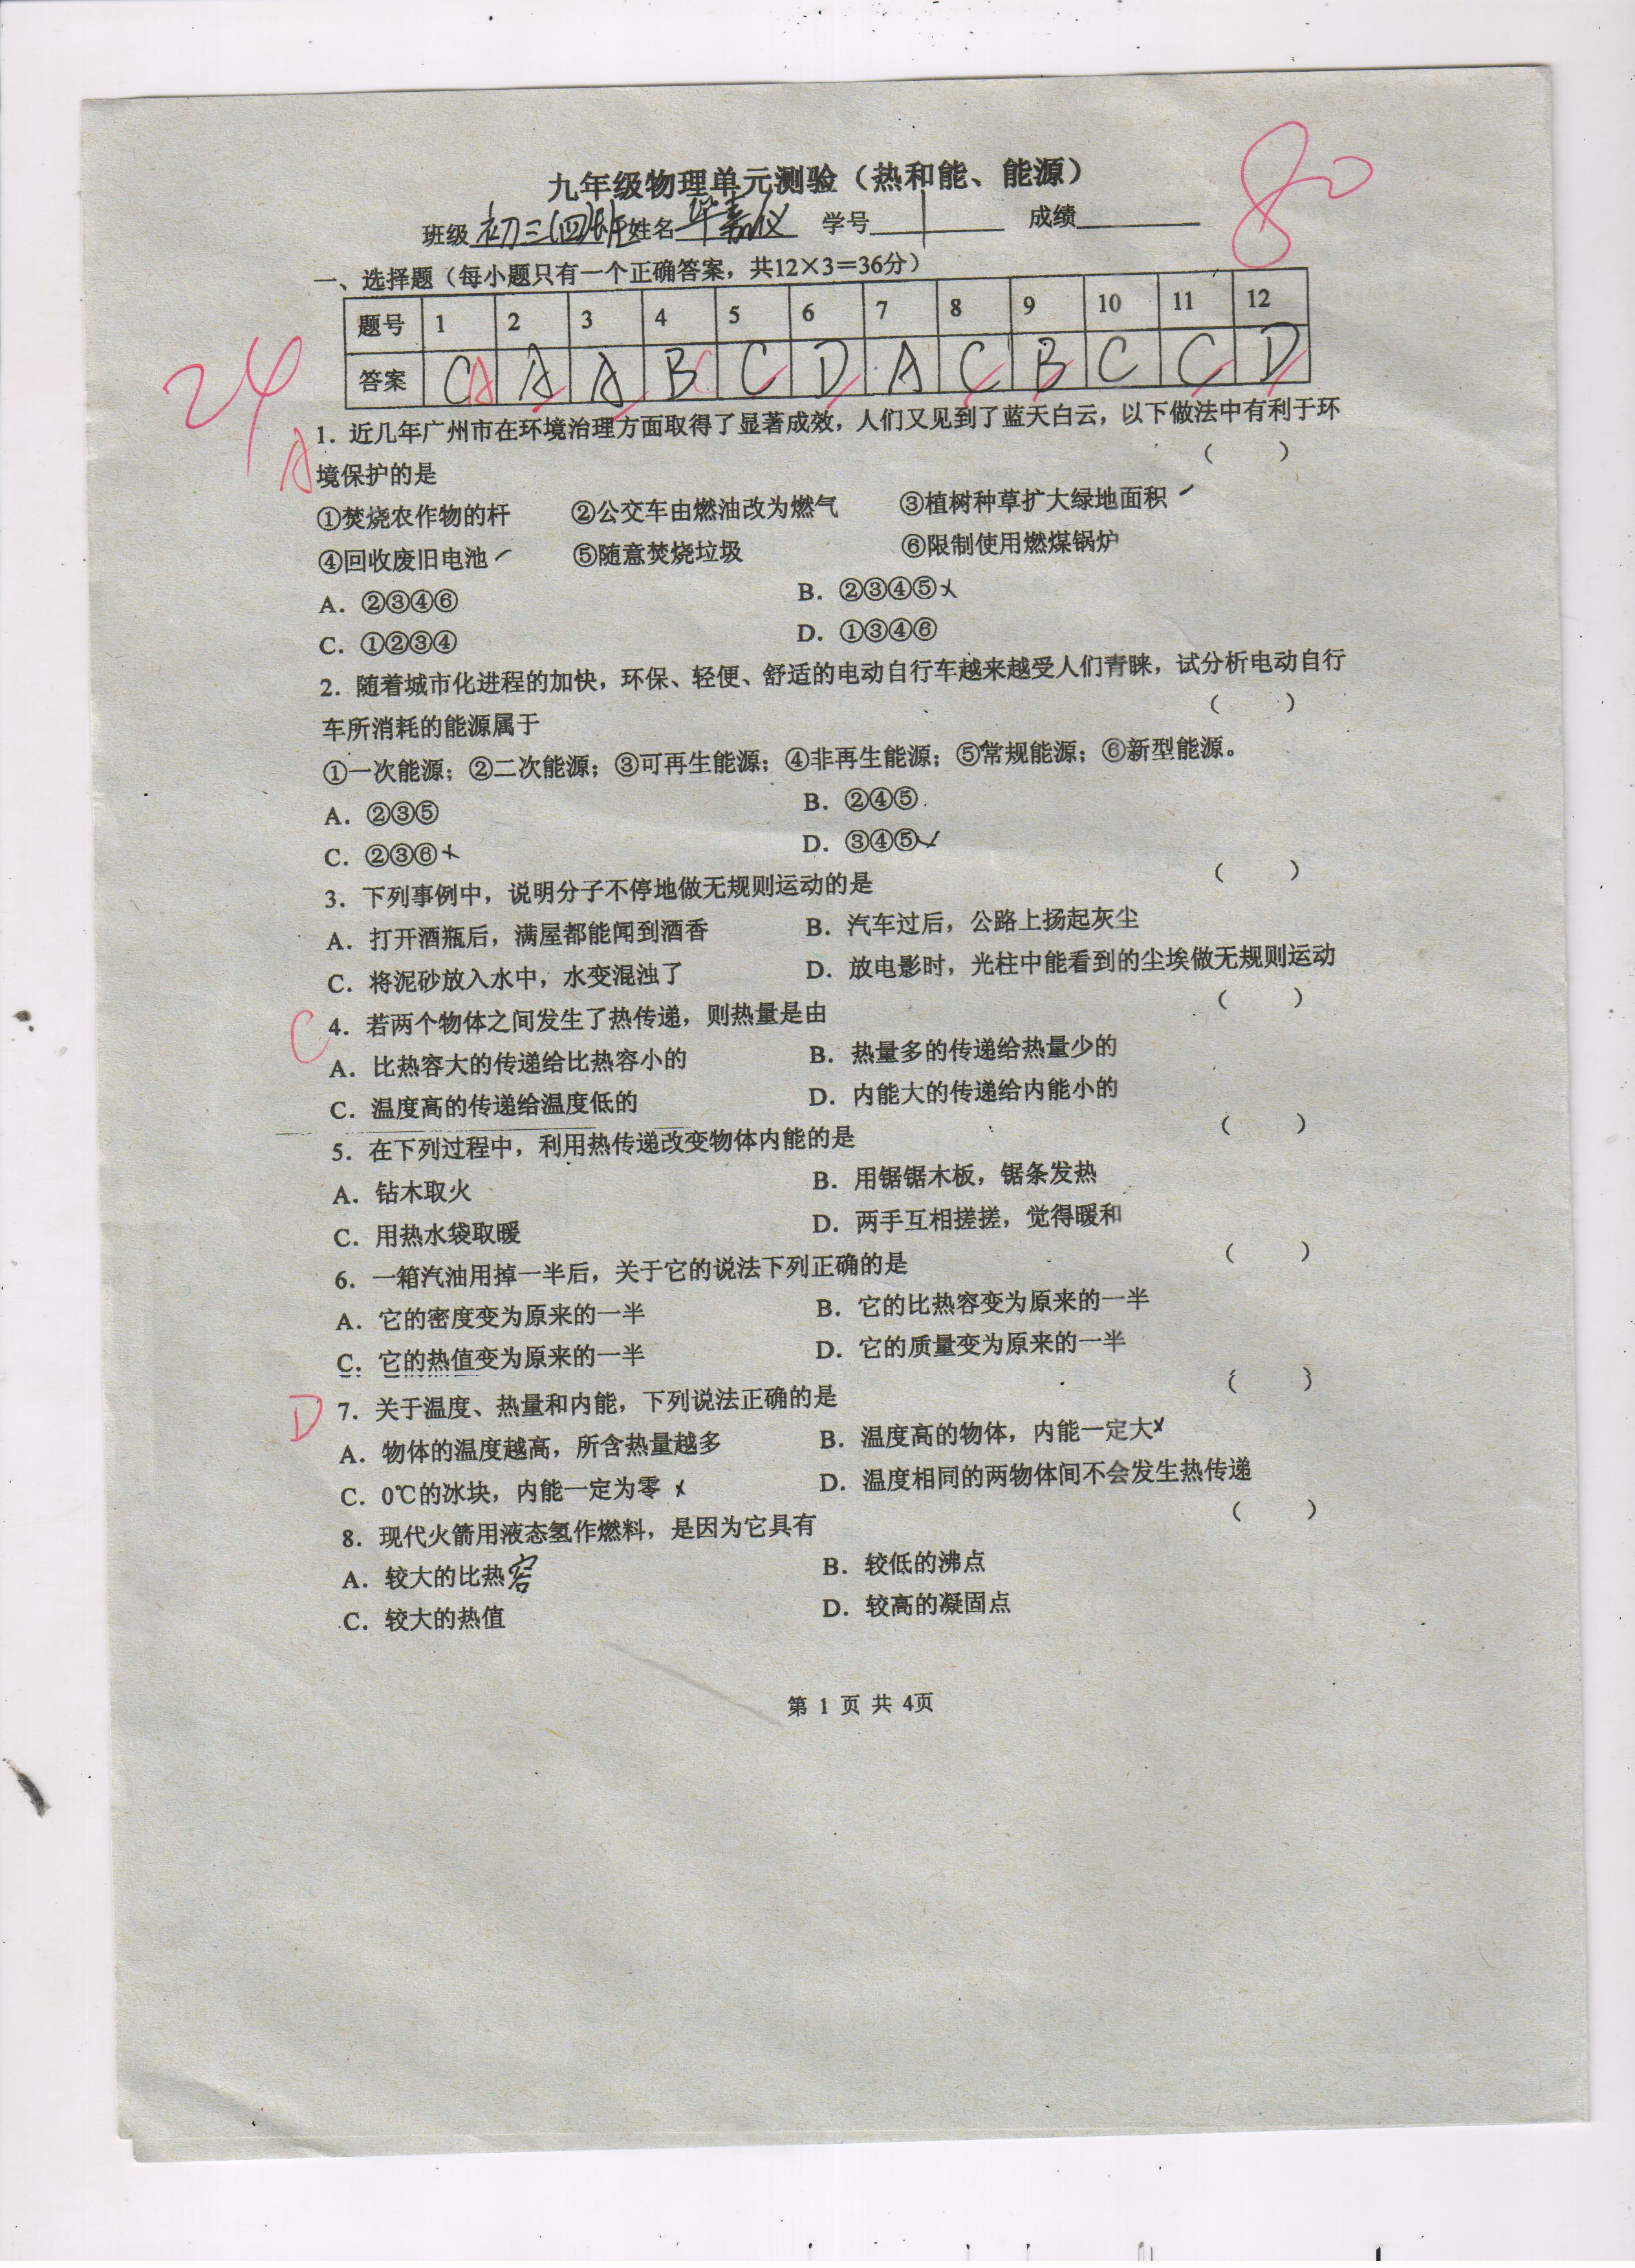 九年级物理单元测验（热和能、能源）
80
班级 初三(四)班 姓名 华嘉仪 学号 1 成绩
一、选择题（每小题只有一个正确答案，共12×3＝36分）
题号 1 2 3 4 5 6 7 8 9 10 11 12
答案 C A A A B C C D A C B C C D
24
A
1. 近几年广州市在环境治理方面取得了显著成效，人们又见到了蓝天白云，以下做法中有利于环
境保护的是 （ ）
①焚烧农作物的杆 ②公交车由燃油改为燃气 ③植树种草扩大绿地面积
④回收废旧电池 ⑤随意焚烧垃圾 ⑥限制使用燃煤锅炉
A. ②③④⑥ B. ②③④⑤
C. ①②③④ D. ①③④⑥
2. 随着城市化进程的加快，环保、轻便、舒适的电动自行车越来越受人们青睐，试分析电动自行
车所消耗的能源属于 （ ）
①一次能源；②二次能源；③可再生能源；④非再生能源；⑤常规能源；⑥新型能源。
A. ②③⑤ B. ②④⑤
C. ②③⑥ D. ③④⑤
3. 下列事例中，说明分子不停地做无规则运动的是 （ ）
A. 打开酒瓶后，满屋都能闻到酒香 B. 汽车过后，公路上扬起灰尘
C. 将泥砂放入水中，水变混浊了 D. 放电影时，光柱中能看到的尘埃做无规则运动
C 4. 若两个物体之间发生了热传递，则热量是由 （ ）
A. 比热容大的传递给比热容小的 B. 热量多的传递给热量少的
C. 温度高的传递给温度低的 D. 内能大的传递给内能小的
5. 在下列过程中，利用热传递改变物体内能的是 （ ）
A. 钻木取火 B. 用锯锯木板，锯条发热
C. 用热水袋取暖 D. 两手互相搓搓，觉得暖和
6. 一箱汽油用掉一半后，关于它的说法下列正确的是 （ ）
A. 它的密度变为原来的一半 B. 它的比热容变为原来的一半
C. 它的热值变为原来的一半 D. 它的质量变为原来的一半
D 7. 关于温度、热量和内能，下列说法正确的是 （ ）
A. 物体的温度越高，所含热量越多 B. 温度高的物体，内能一定大
C. 0℃的冰块，内能一定为零 D. 温度相同的两物体间不会发生热传递
8. 现代火箭用液态氢作燃料，是因为它具有 （ ）
A. 较大的比热容 B. 较低的沸点
C. 较大的热值 D. 较高的凝固点
第 1 页 共 4页